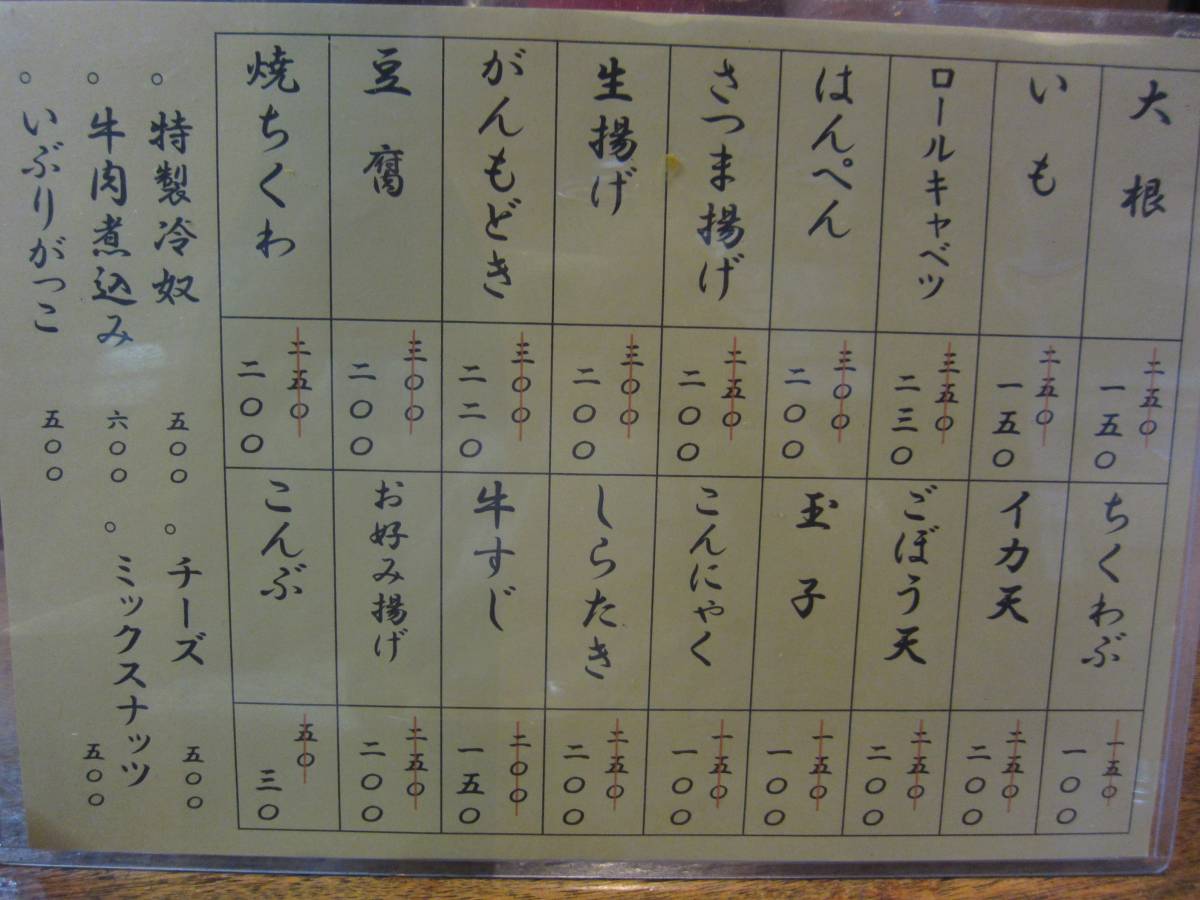 大根
二五〇
一五〇
いも
二五〇
一五〇
ロールキャベツ
三五〇
二三〇
はんぺん
三〇〇
二〇〇
さつま揚げ
二五〇
二〇〇
生揚げ
三〇〇
二〇〇
がんもどき
三〇〇
二二〇
豆腐
三〇〇
二〇〇
焼ちくわ
二五〇
二〇〇
ちくわぶ
一五〇
一〇〇
イカ天
二五〇
二〇〇
ごぼう天
二五〇
二〇〇
玉子
一五〇
一〇〇
こんにゃく
一五〇
一〇〇
しらたき
二五〇
二〇〇
牛すじ
二〇〇
一五〇
お好み揚げ
二五〇
二〇〇
こんぶ
五〇
三〇
。特製冷奴 五〇〇
。チーズ 五〇〇
。牛肉煮込み 六〇〇
。ミックスナッツ 五〇〇
。いぶりがっこ 五〇〇